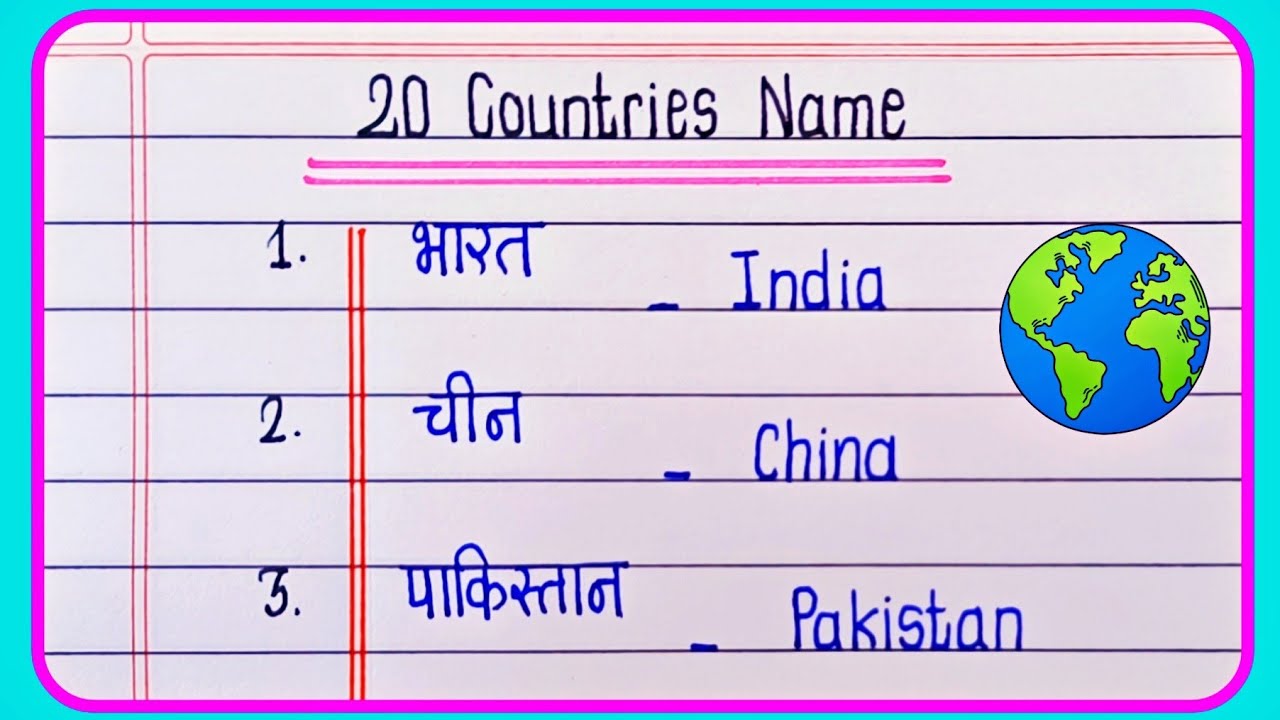 20 Countries Name
1. भारत - India
2. चीन - China
3. पाकिस्तान - Pakistan